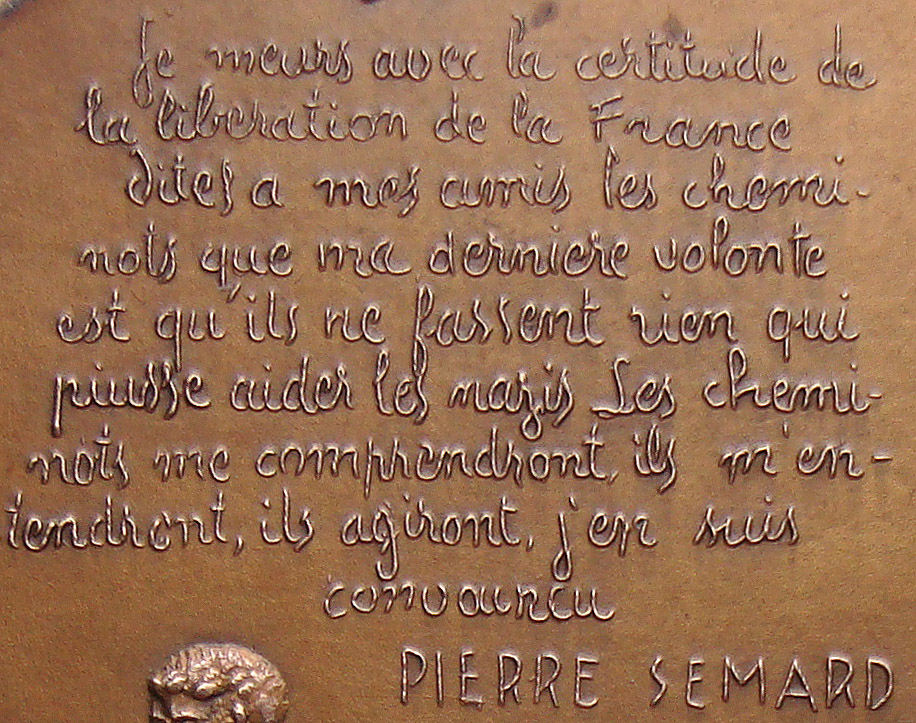 Je meurs avec la certitude de
la liberation de la France
Dites a mes amis les chemi-
nots que ma derniere volonte
est qu'ils ne fassent rien qui
piusse aider les nazis Les chemi-
nots me comprendront, ils m'en-
tendront, ils agiront, j'en suis
convaincu
PIERRE SEMARD